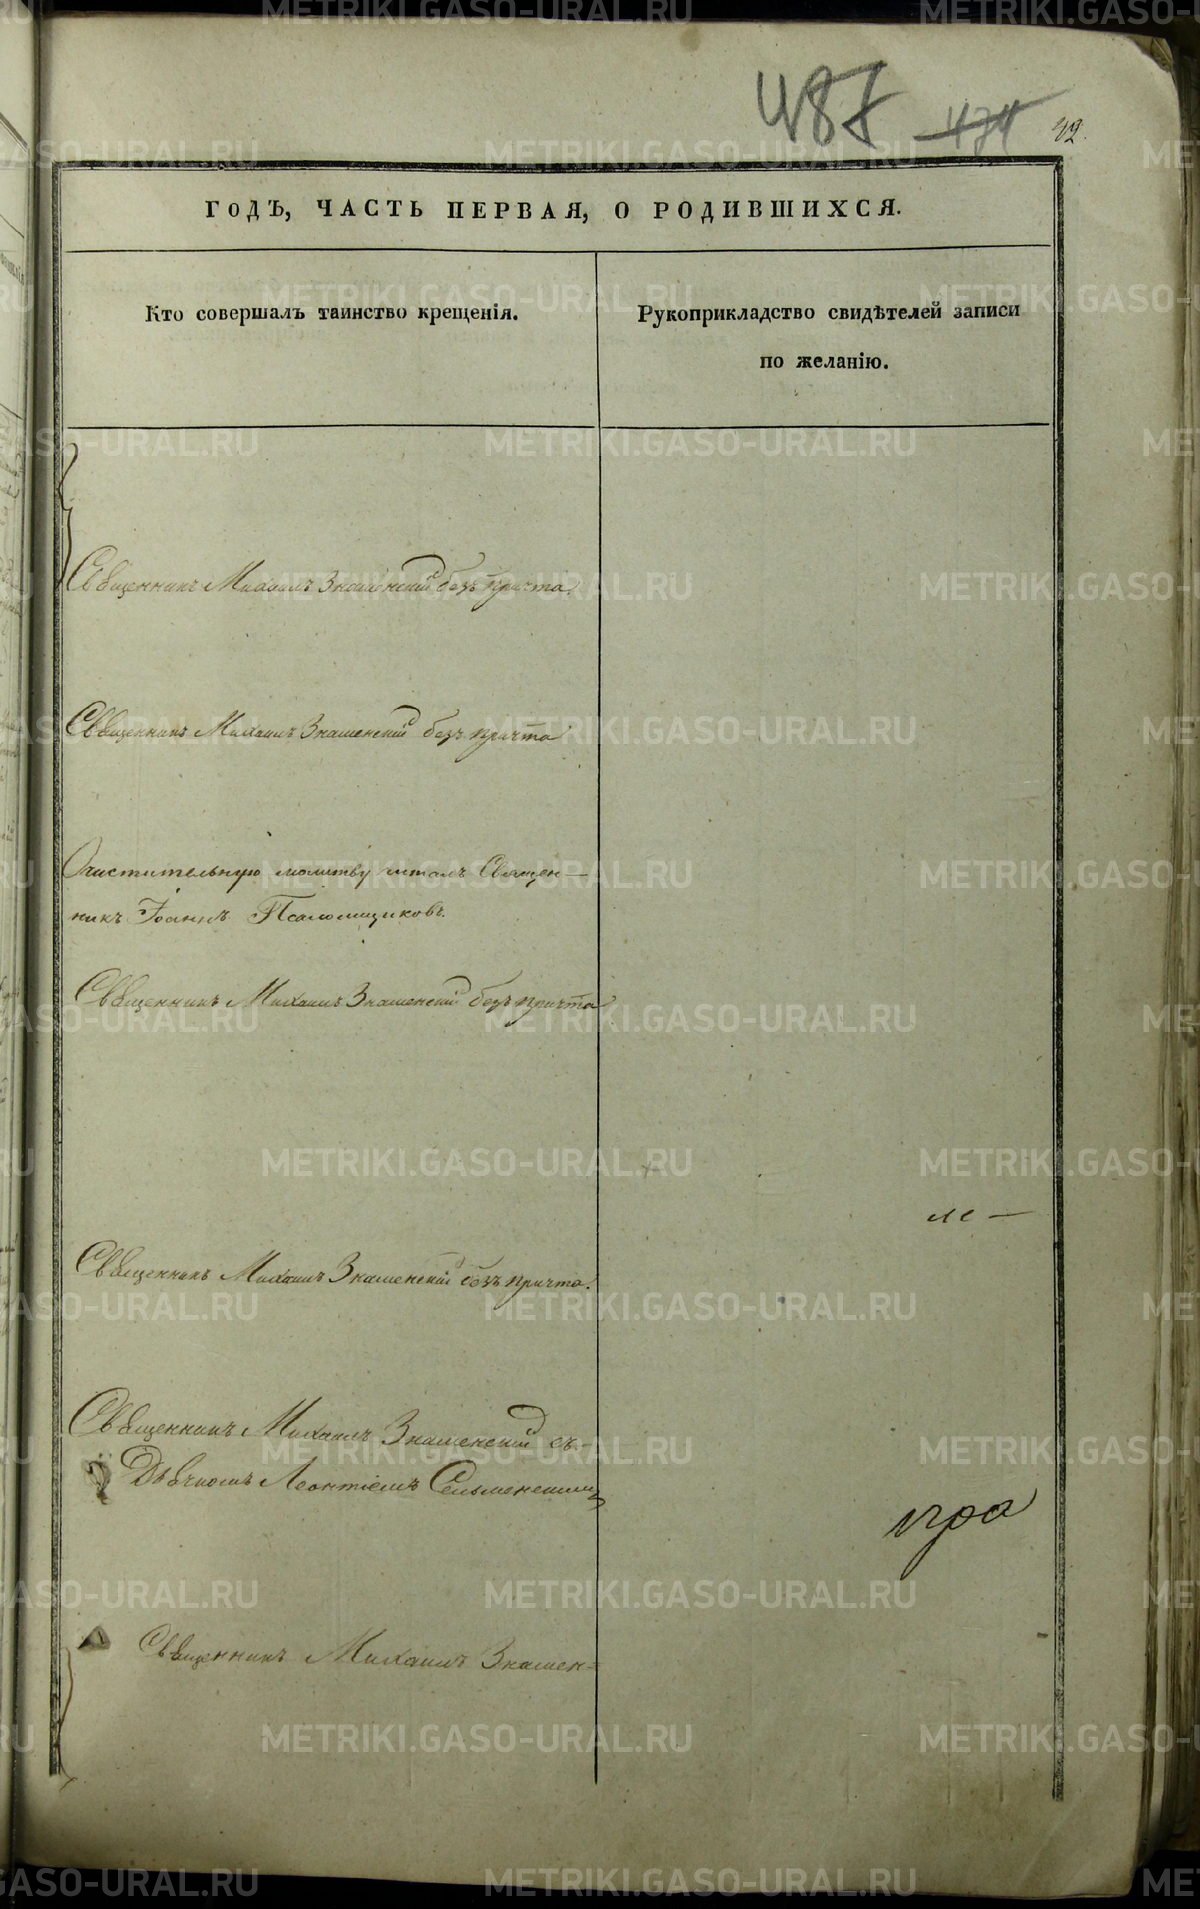 487 474 42.
ГОДЪ, ЧАСТЬ ПЕРВАЯ, О РОДИВШИХСЯ.
Кто совершалъ таинство крещенія.
Рукоприкладство свидѣтелей записи
по желанію.
Священникъ Михаилъ Знаменскій безъ причта.
Священникъ Михаилъ Знаменскій безъ причта
Очистительную молитву читалъ Священ-
никъ Іоаннъ Псаломщиковъ.
Священникъ Михаилъ Знаменскій безъ причта
ле —
Священникъ Михаилъ Знаменскій безъ причта.
Священникъ Михаилъ Знаменскій съ
Дьячкомъ Леонтіемъ
Священникъ Михаилъ Знамен-
METRIKI.GASO-URAL.RU